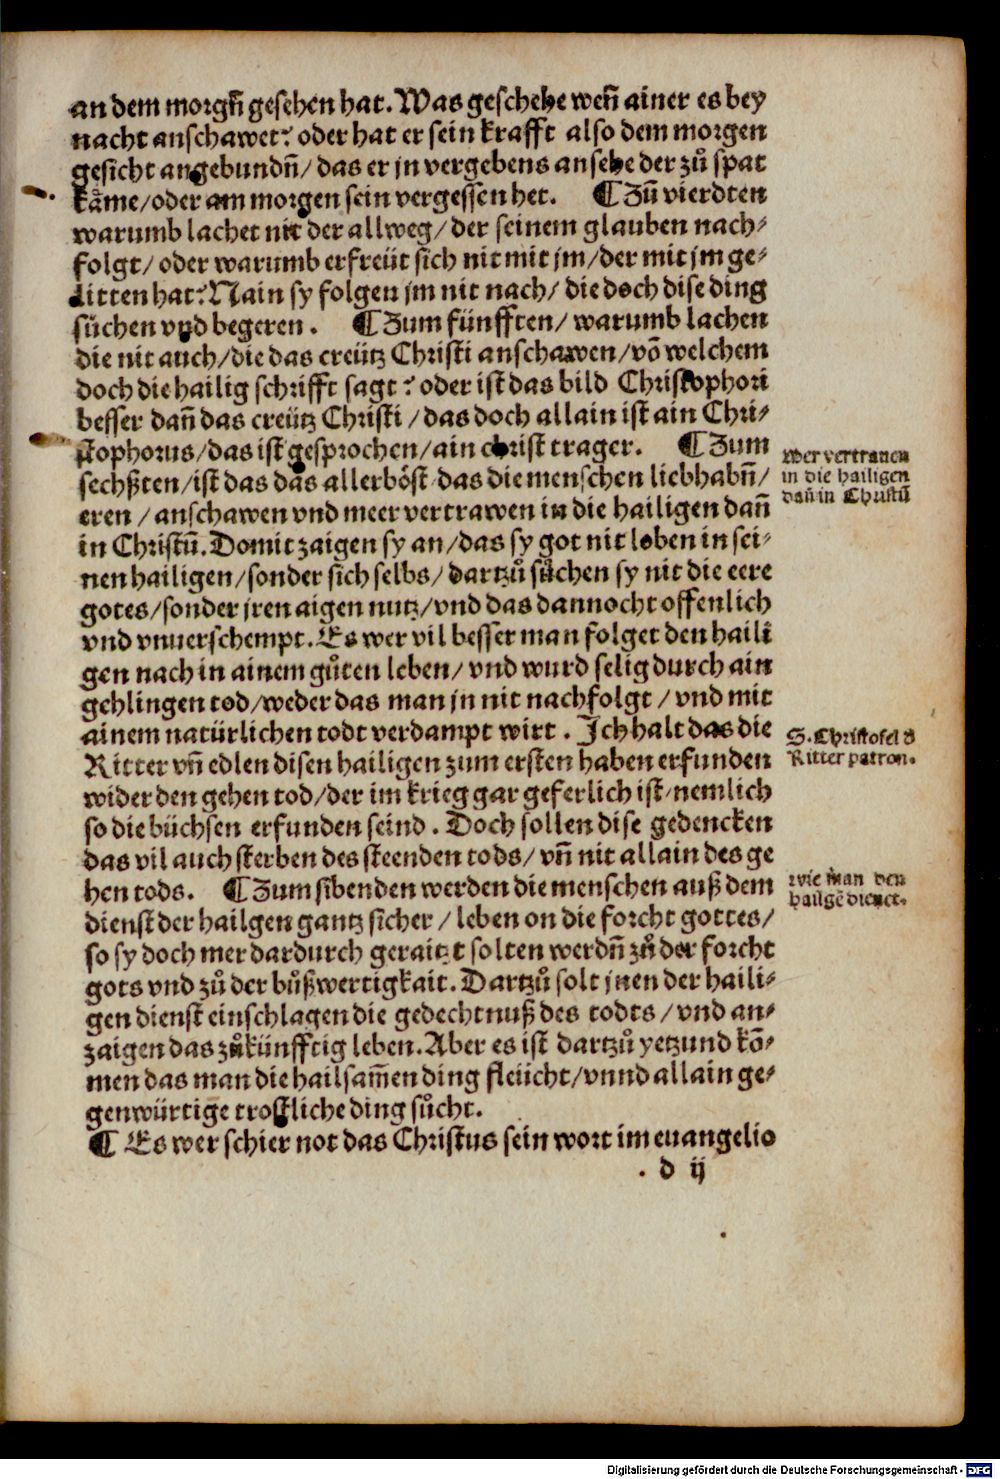 an dem morgñ gesehen hat. Was geschehe weñ ainer es bey
nacht anschawet? oder hat er sein krafft also dem morgen
gesicht angebundñ/ das er jn vergebens ansehe der zů spat
kåme/oder am morgen sein vergessen het. ¶ Zũ vierdten
warumb lachet nit der allweg/ der seinem glauben nach⸗
folgt/ oder warumb erfreüt sich nit mit jm/der mit jm ge⸗
litten hat? Nain sy folgen jm nit nach/ die doch dise ding
sůchen vnd begeren. ¶ Zum fünfften/ warumb lachen
die nit auch/die das creütz Christi anschawen/võ welchem
doch die hailig schrifft sagt? oder ist das bild Christophori
besser dañ das creütz Christi/das doch allain ist ain Chri⸗
stophorus/das ist gesprochen/ain christ trager. ¶ Zum
sechßten/ist das das allerböst/das die menschen liebhabñ/
eren/ anschawen vnd meer vertrawen in die hailigen dañ
in Christũ. Domit zaigen sy an/das sy got nit loben in sei⸗
nen hailigen/sonder sich selbs/ dartzů sůchen sy nit die eere
gotes/sonder jren aigen nutz/vnd das dannocht offenlich
vnd vnuerschempt. Es wer vil besser man folget den haili
gen nach in ainem gůten leben/ vnd wurd selig durch ain
gehlingen tod/weder das man jn nit nachfolgt/ vnd mit
ainem natürlichen todt verdampt wirt. Ich halt das die
Ritter vñ edlen disen hailigen zum ersten haben erfunden
wider den gehen tod/der im krieg gar geferlich ist/nemlich
so die büchsen erfunden seind. Doch sollen dise gedencken
das vil auch sterben des steenden tods/ vñ nit allain des ge
hen tods. ¶ Zum sibenden werden die menschen auß dem
dienst der hailgen gantz sicher/ leben on die forcht gottes/
so sy doch mer dardurch geraitzt solten werdñ zů der forcht
gots vnd zů der bůßwertigkait. Dartzů solt jnen der haili⸗
gen dienst einschlagen die gedechtnuß des todts/ vnd an⸗
zaigen das zůkünfftig leben. Aber es ist dartzů yetzund kõ⸗
men das man die hailsam̃en ding fleücht/vnnd allain ge⸗
genwürtige trostliche ding sůcht.
¶ Es wer schier not das Christus sein wort im euangelio
d ij
Wer vertrauen
in die hailigen
dañ in Christũ
S. Christofel d
Ritter patron.
wie man den
hailgẽ dienet.
Digitalisierung gefördert durch die Deutsche Forschungsgemeinschaft - DFG